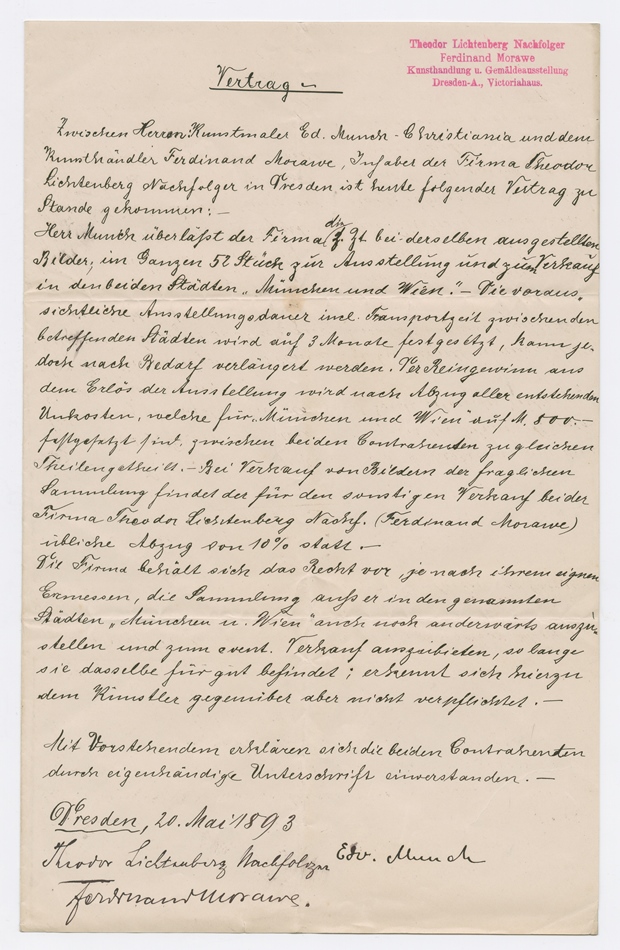 Theodor Lichtenberg Nachfolger
Ferdinand Morawe
Kunsthandlung u. Gemäldeausstellung
Dresden-A., Victoriahaus.
Vertrag
Zwischen Herren Kunstmaler Ed. Munch - Christiania und dem
Kunsthändler Ferdinand Morawe, Inhaber der Firma Theodor
Lichtenberg Nachfolger in Dresden, ist heute folgender Vertrag zu
Stande gekommen: —
Herr Munch überläßt der Firma die z. Zt. bei derselben ausgestellten
Bilder, im Ganzen 52 Stück zur Ausstellung und zum Verkauf
in den beiden Städten „München und Wien". — Die voraus-
sichtliche Ausstellungsdauer incl. Transportzeit zwischen den
betreffenden Städten wird auf 3 Monate festgesetzt, kann je-
doch nach Bedarf verlängert werden. Der Reingewinn aus
dem Erlös der Ausstellung wird nach Abzug aller entstehenden
Unkosten, welche für „München und Wien" auf M. 800.—
festgesetzt sind, zwischen beiden Contrahenten zu gleichen
Theilen getheilt. — Bei Verkauf von Bildern der fraglichen
Sammlung findet der für den sonstigen Verkauf bei der
Firma Theodor Lichtenberg Nachf. (Ferdinand Morawe)
übliche Abzug von 10% statt. —
Die Firma behält sich das Recht vor, je nach ihrem eignen
Ermessen, die Sammlung außer in den genannten
Städten „München u. Wien" auch noch anderwärts auszu-
stellen und zum event. Verkauf auszubieten, so lange
sie dasselbe für gut befindet; erkennt sich hierzu
dem Künstler gegenüber aber nicht verpflichtet. —
Mit Vorstehendem erklären sich die beiden Contrahenten
durch eigenhändige Unterschrift einverstanden. —
Dresden, 20. Mai 1893
Theodor Lichtenberg Nachfolger Edv. Munch
Ferdinand Morawe.